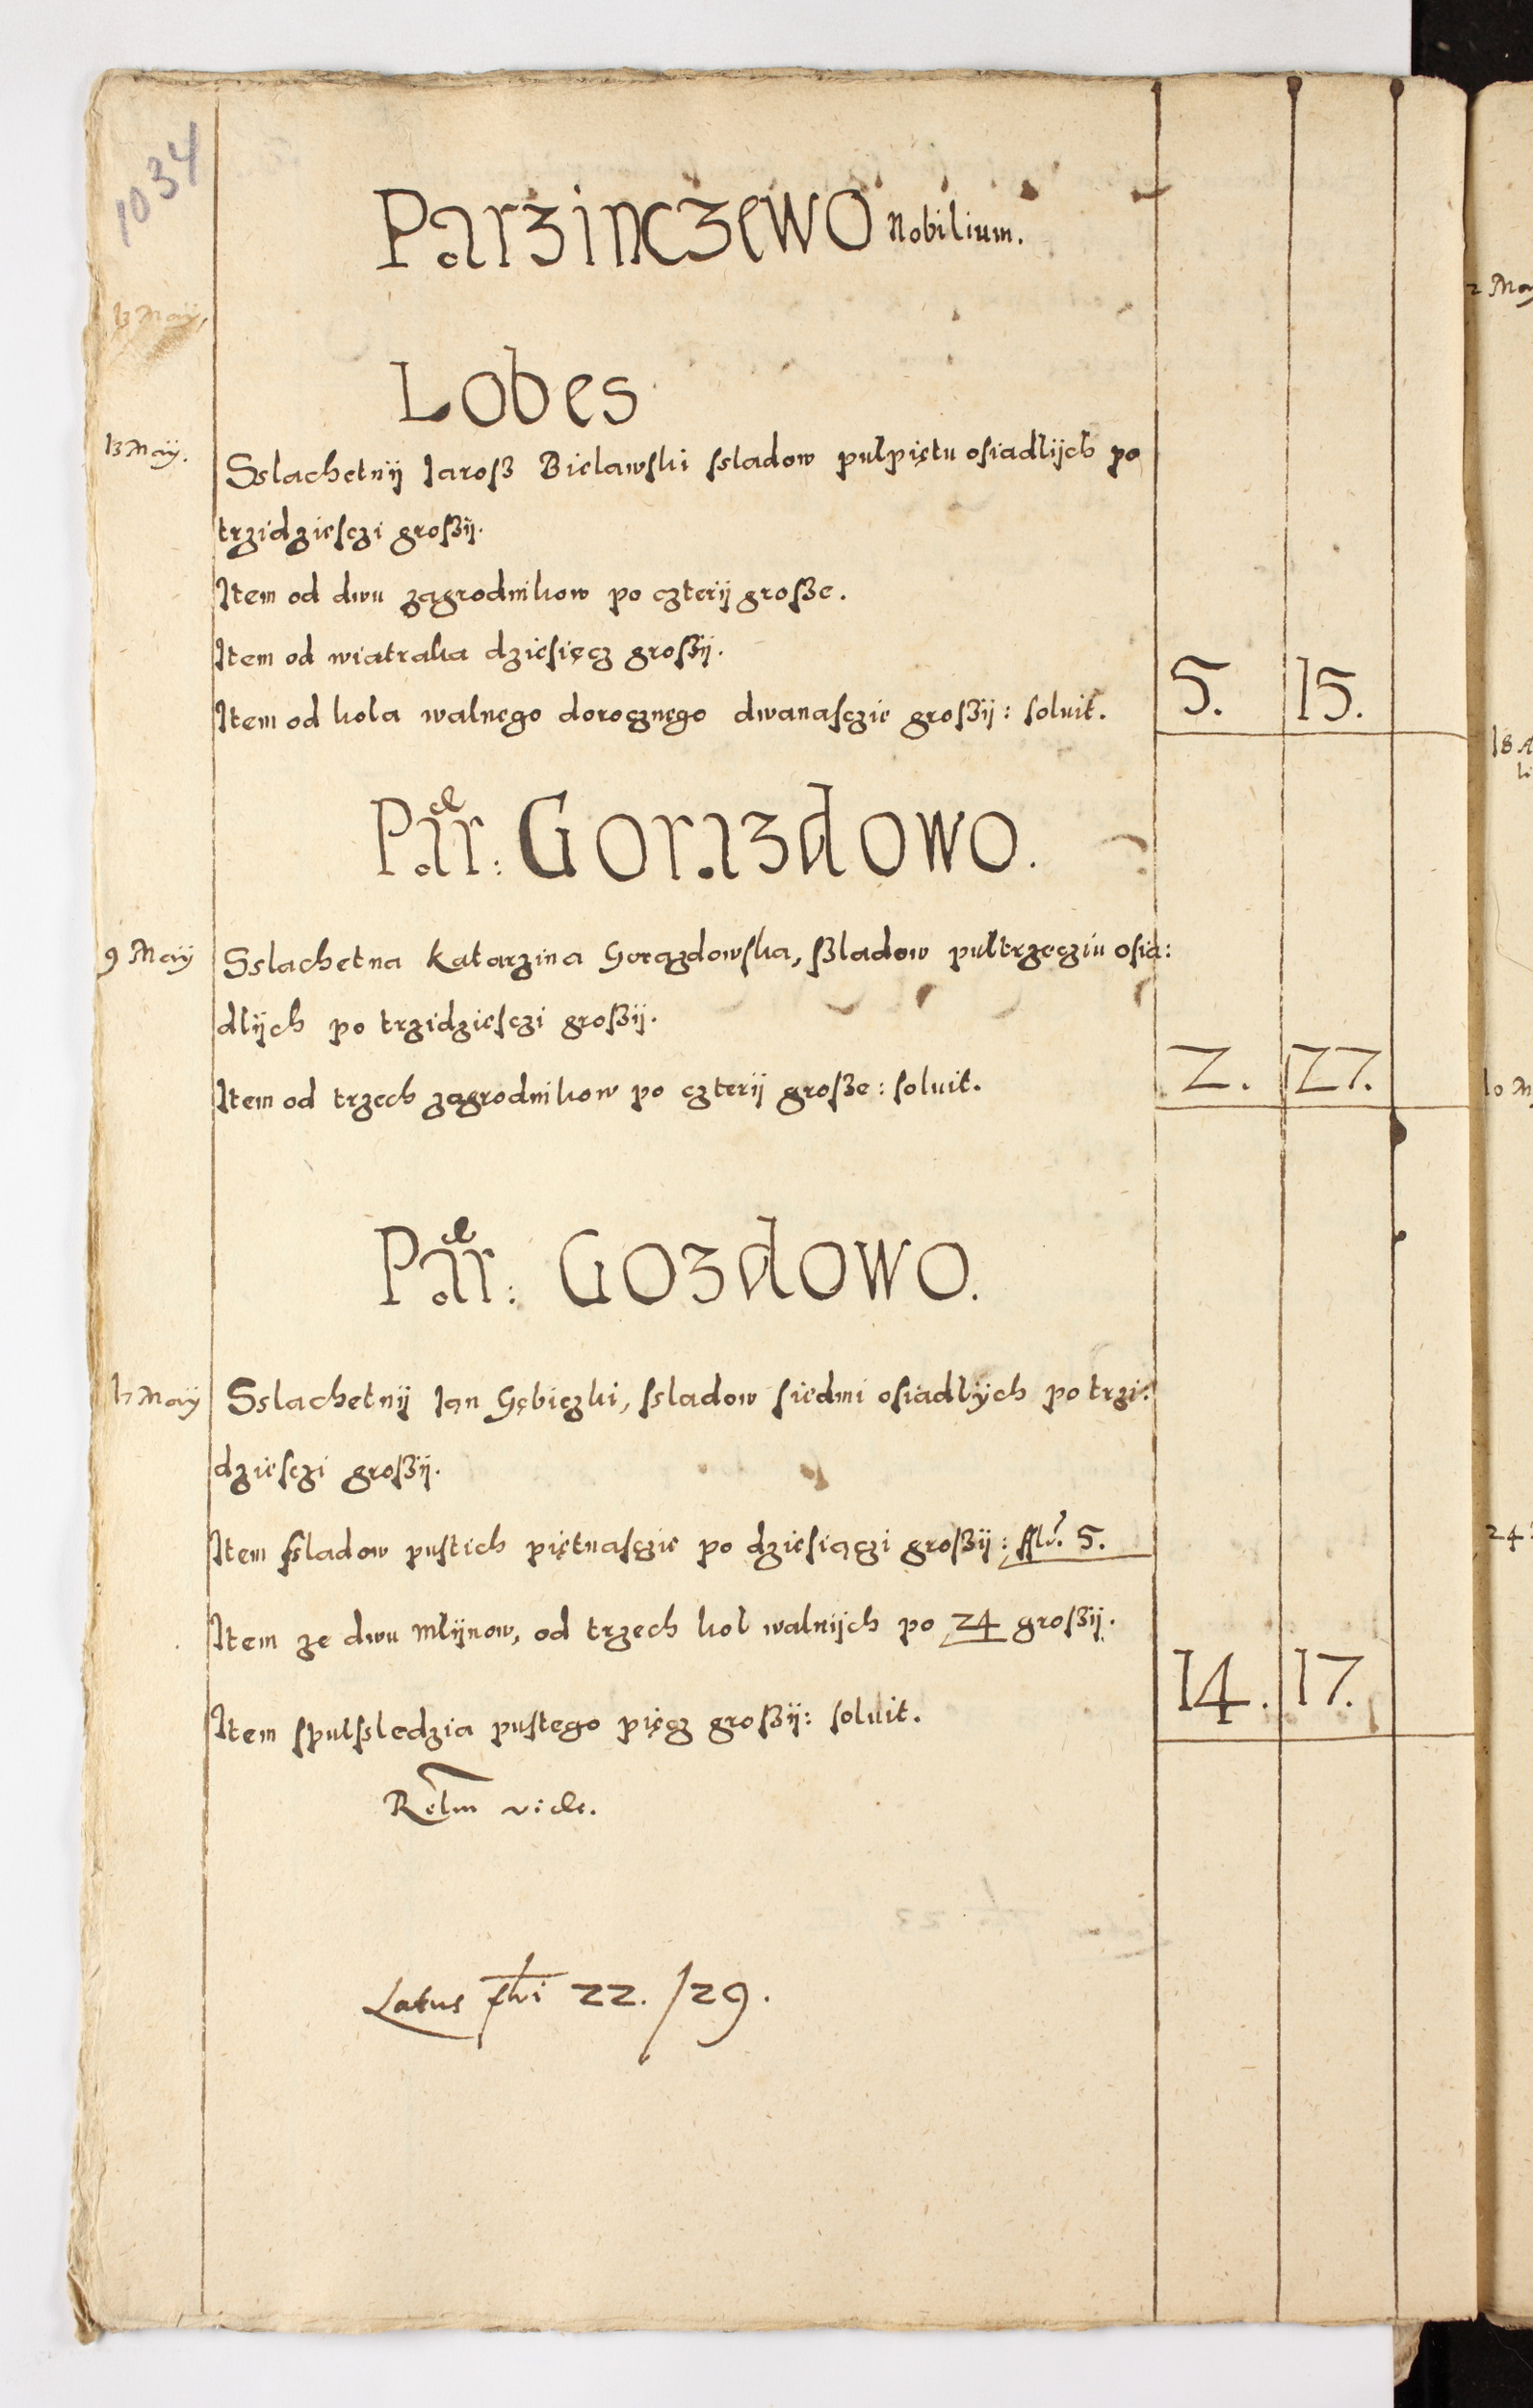 1034
Parzinczewo Nobilium.
13 Maij,
Lobes
13 Maij.
Sslachetnij Jaroß Bielawski ssladow pulpiętu osiadlijch po
trzidziesczi großij.
Item od dwu zagrodnikow po czterij große.
Item od wiatraka dziesięcz großij.
Item od kola walnego dorocznego dwanasczie großij: soluit.
5. 15.
Par: Gorazdowo.
9 Maij
Sslachetna Katarzina Gorazdowska, ßladow pultrzecziu osia:
dlijch po trzidziesczi großij.
Item od trzech zagrodnikow po czterij große: soluit.
2. 27.
Par: Gozdowo.
17 Maij
Sslachetnij Jan Gębiczki, ssladow siedmi osiadlych po trzi:
dziesczi großij.
Item ssladow pustich piętnasczie po dziesiączi großij: 5.
Item ze dwu mlijnow, od trzech kol walnijch po 24 großij.
Item spulsledzia pustego pięcz großij: soluit.
14. 17.
vide.
Latus fhi 22. / 29.
2 May
18 A
10 M
24